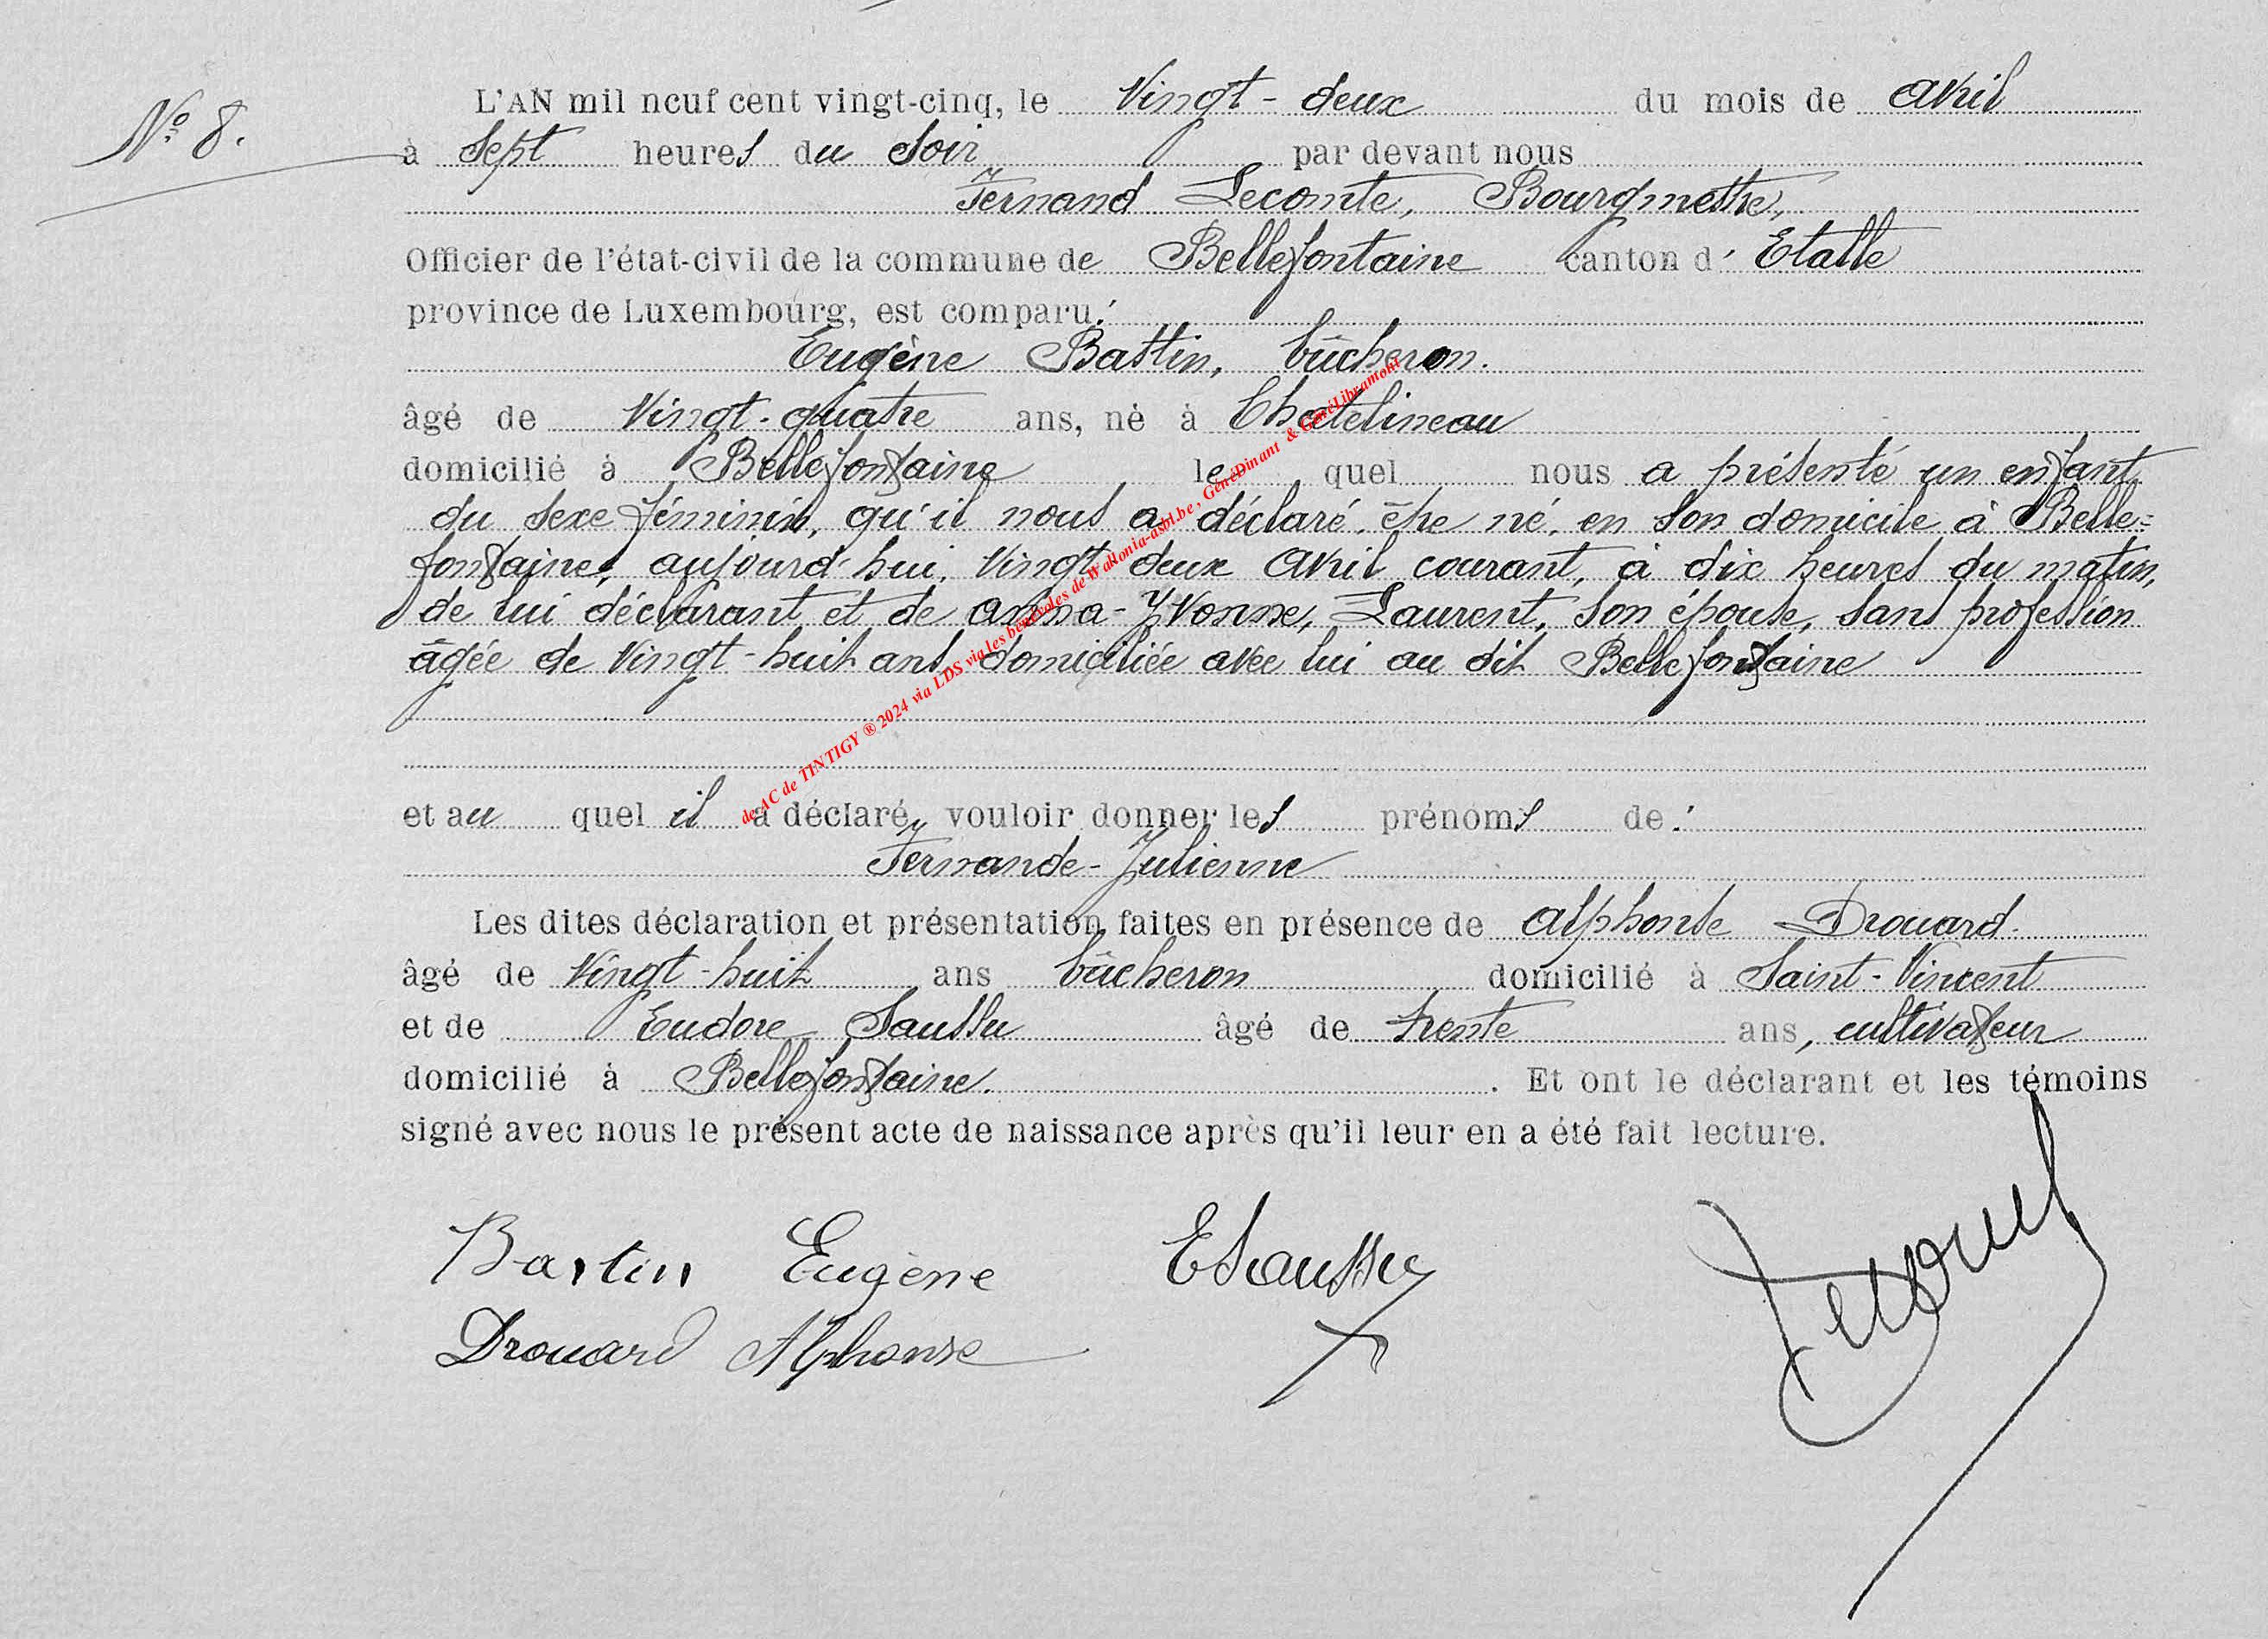 N° 8.
L'AN mil neuf cent vingt-cinq, le Vingt-deux du mois de Avril
à Sept heures du Soir par devant nous
Fernand Lecomte, Bourgmestre,
Officier de l'état-civil de la commune de Bellefontaine canton d'Etalle
province de Luxembourg, est comparu:
Eugène Bastin, bûcheron.
âgé de Vingt-quatre ans, né à Chatelineau
domicilié à Bellefontaine lequel nous a présenté un enfant
du sexe féminin, qu'il nous a déclaré être né en son domicile à Belle=
fontaine, aujourd'hui, Vingt deux Avril courant, à dix heures du matin,
de lui déclarant et de Anna-Yvonne, Laurent, son épouse, sans profession
âgée de Vingt-huit ans domiciliée avec lui au dit Bellefontaine
et au quel il a déclaré vouloir donner les prénoms de:
Fernande-Julienne
Les dites déclaration et présentation faites en présence de Alphonse Drouard.
âgé de Vingt-huit ans bûcheron domicilié à Saint-Vincent
et de Eudore Saussu âgé de trente ans, cultivateur
domicilié à Bellefontaine. Et ont le déclarant et les témoins
signé avec nous le présent acte de naissance après qu'il leur en a été fait lecture.
Bastin Eugène ESaussu
Drouard Alphonse
de AC de TINTIGY ® 2024 via LDS via les bénévoles de Wallonia-asbl.be, GénéDinant & GénéLibramont